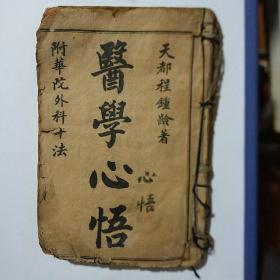 天都程鍾齡著
醫學心悟
心悟
附華陀外科十法